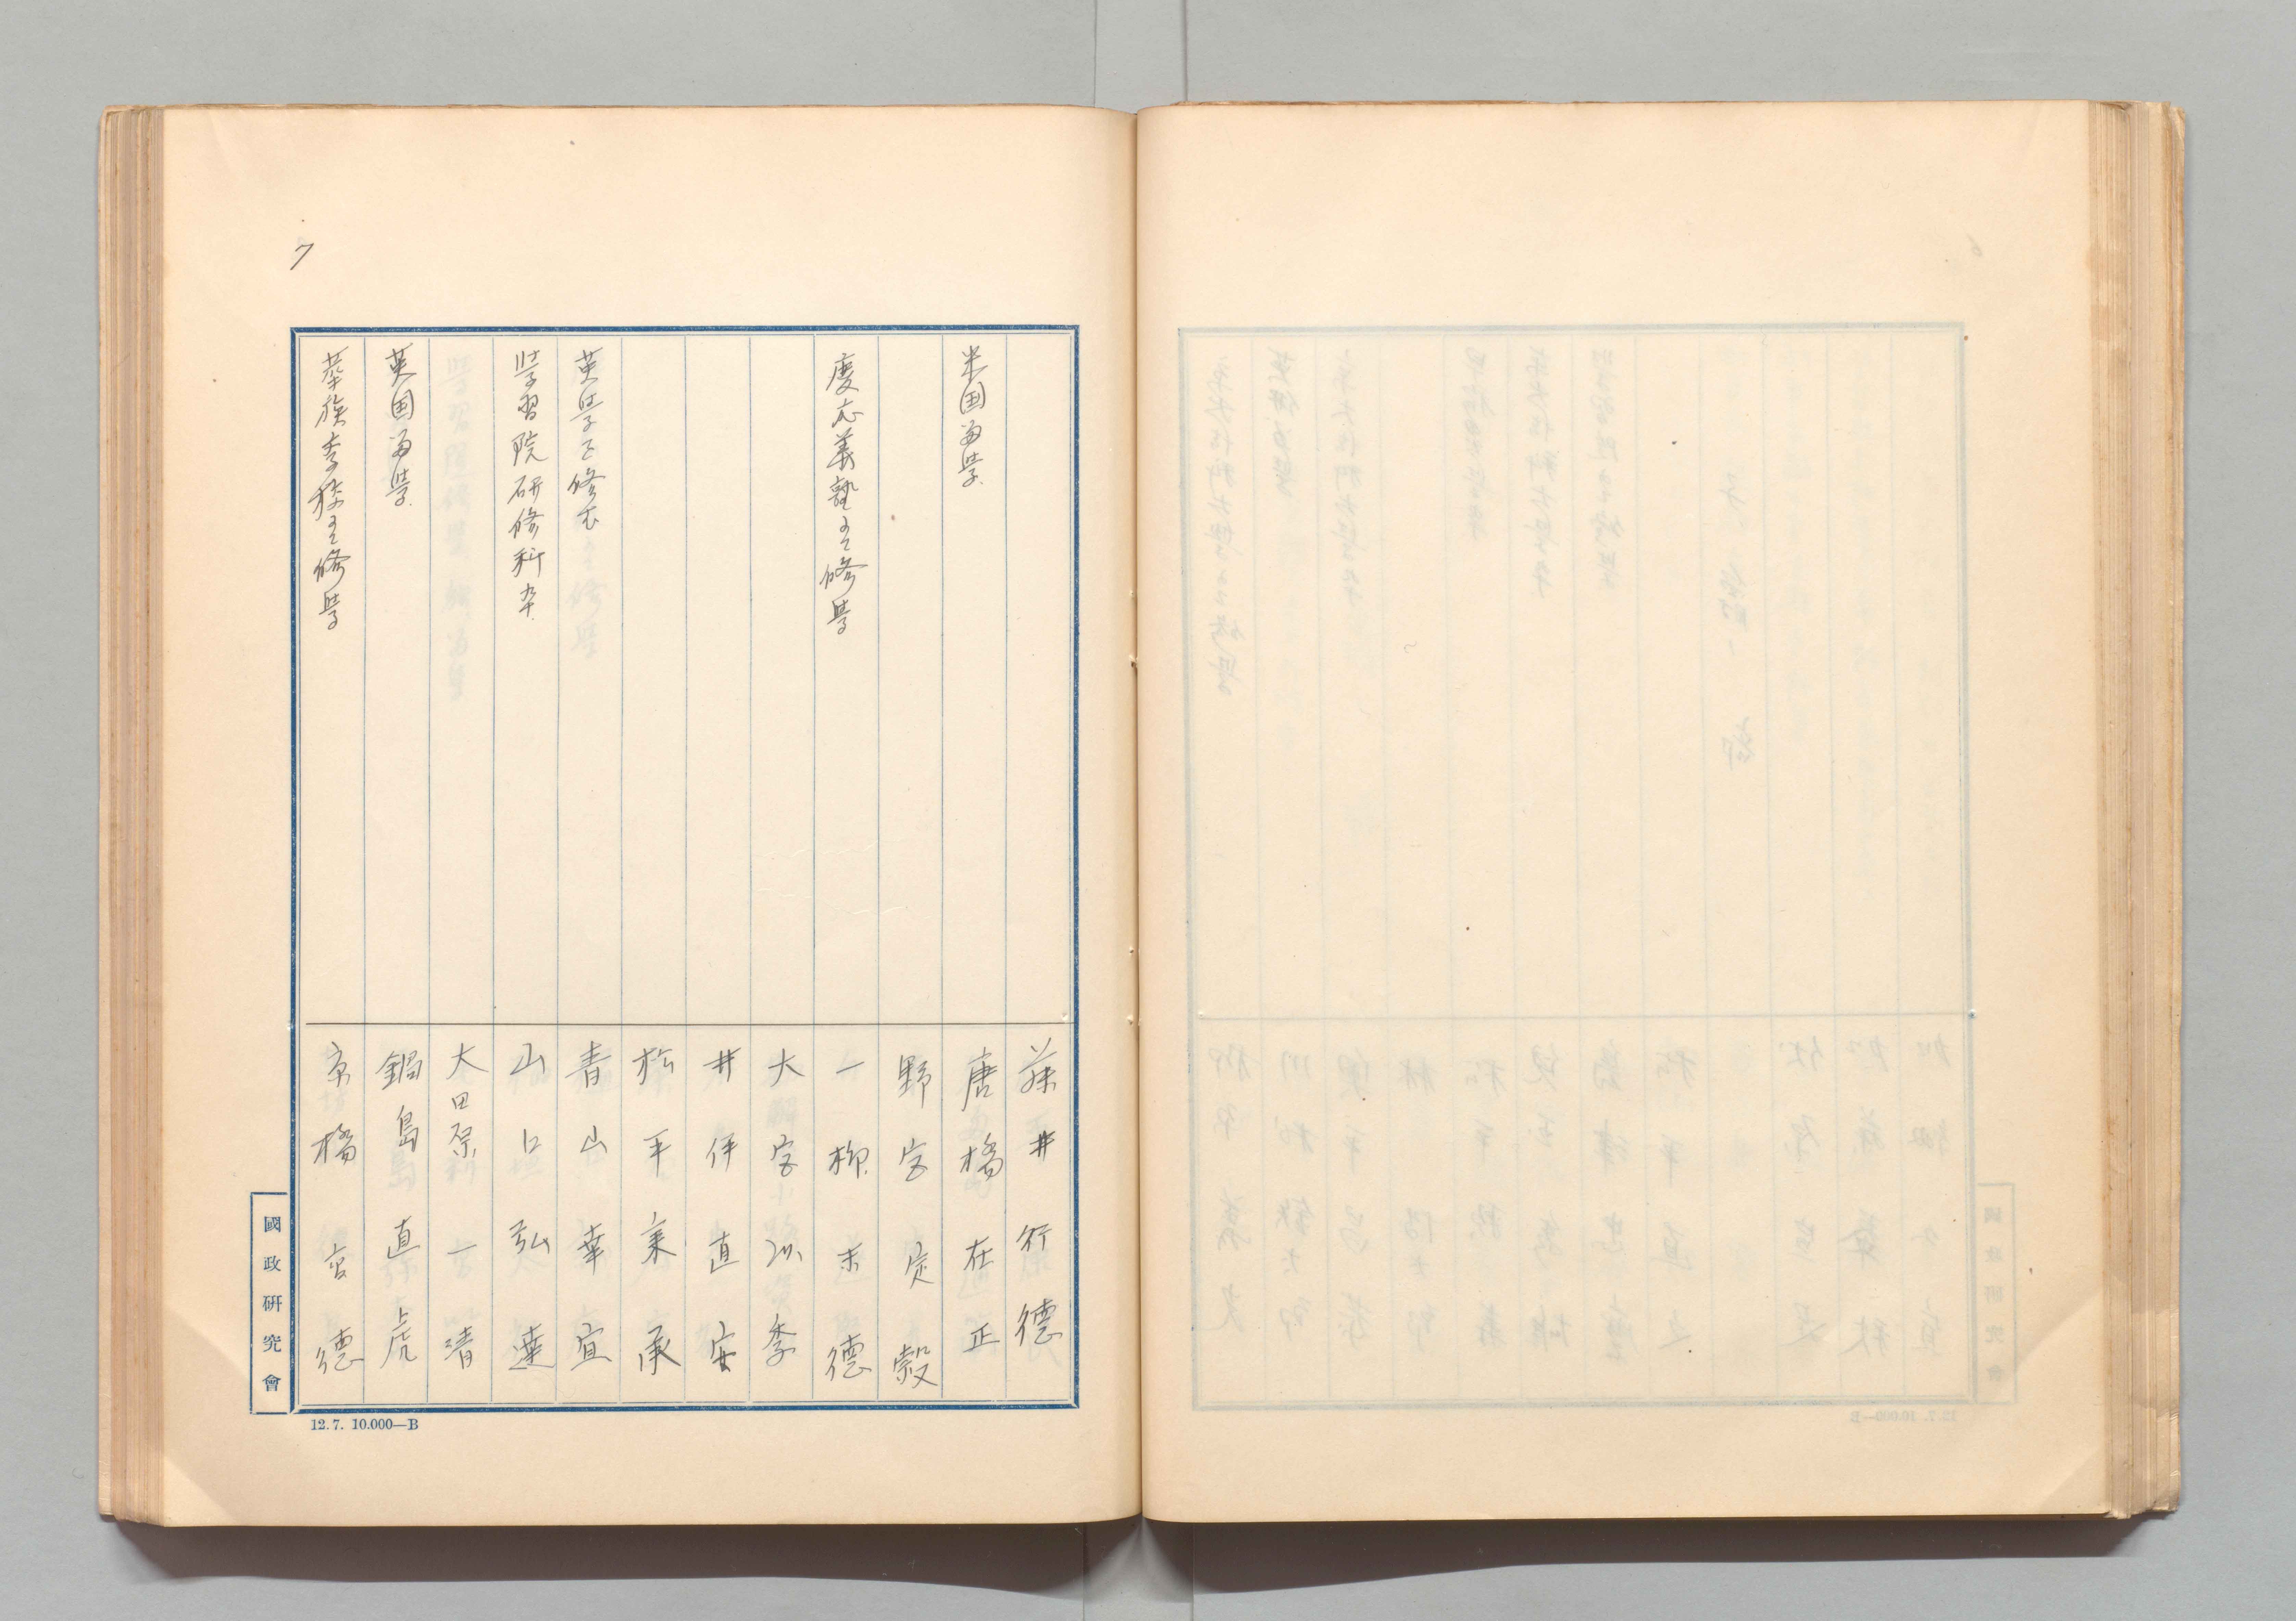 7
藤井行德
米国留学 唐橋在正
野宮定穀
慶応義塾ニ修学 一柳末德
大宮以季
井伊直安
松平乗承
青山幸宜
英学ヲ修む
学習院研修科卒 山口弘達
大田原一清
英国留学 鍋島直虎
華族学校ニ修学 京極高德
國政研究會
12.7. 10.000—B